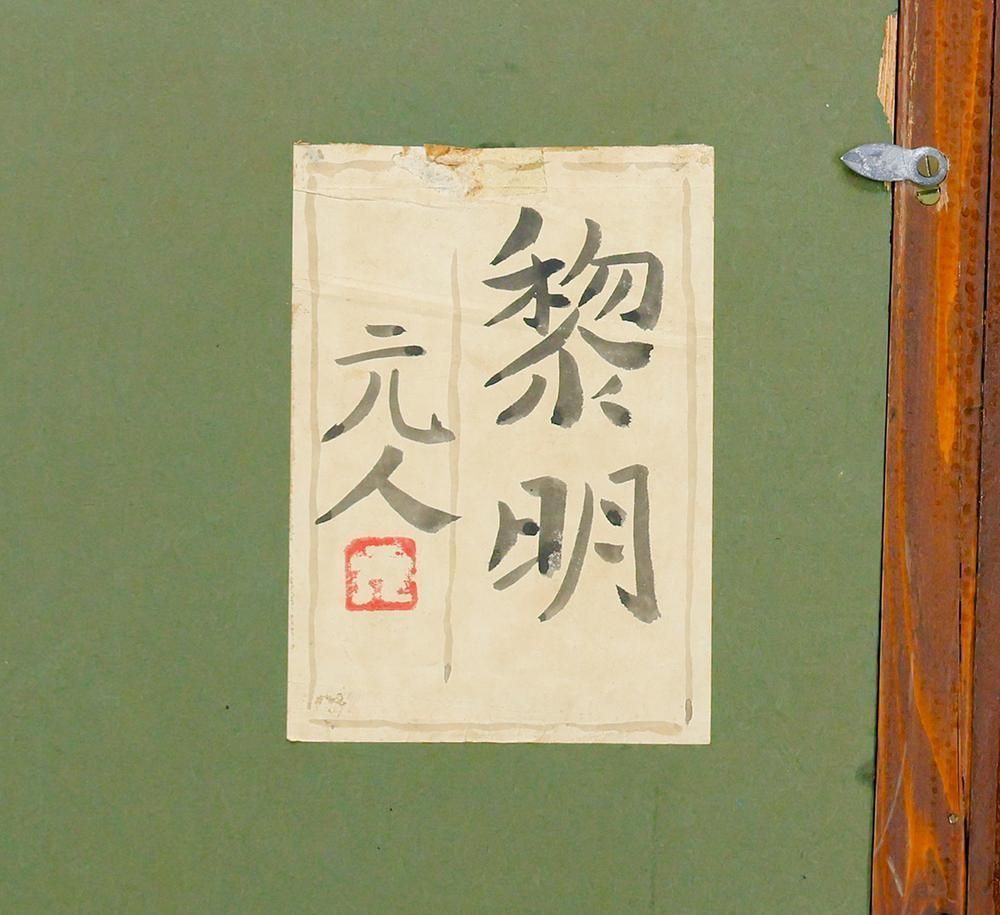 黎明
元人